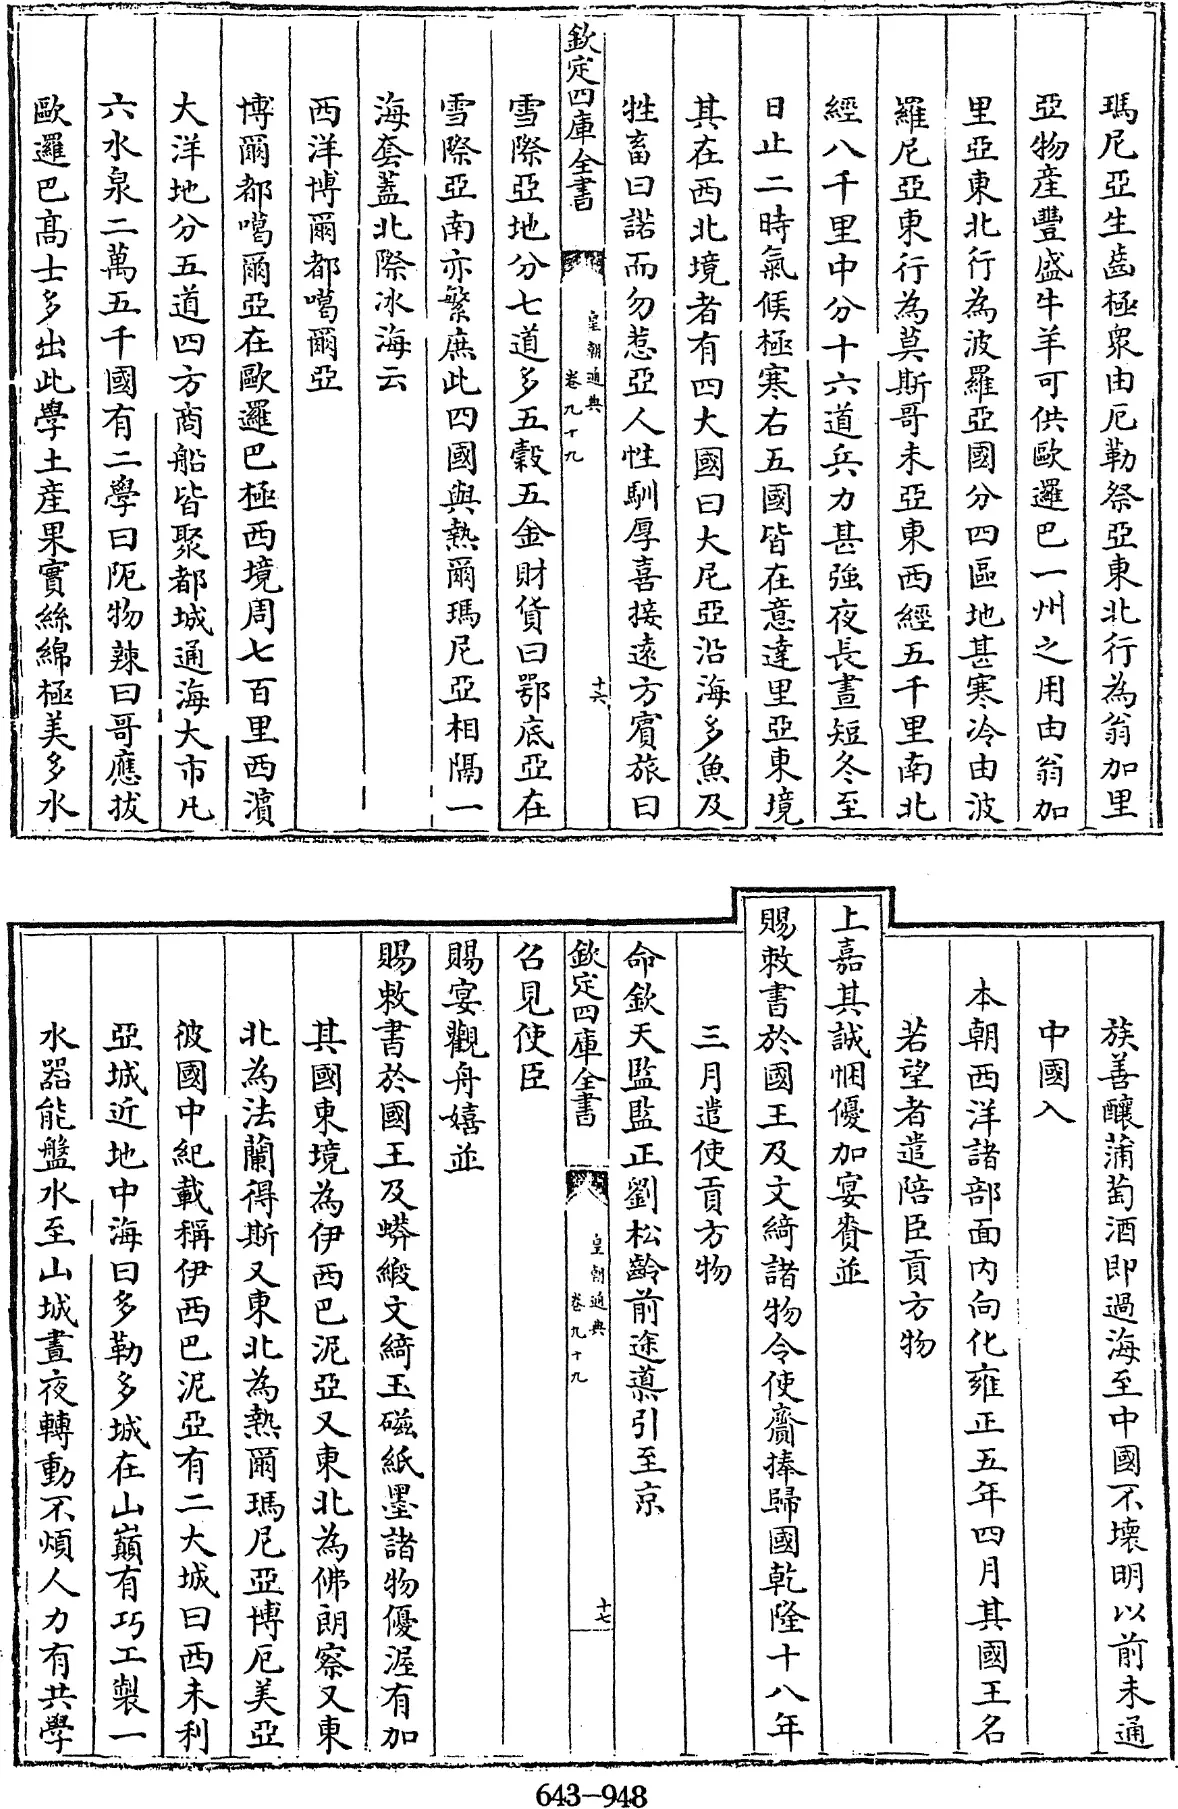 瑪尼亞生齒極衆由厄勒祭亞東北行為翁加里
亞物産豐盛牛羊可供歐邏巴一州之用由翁加
里亞東北行為波羅亞國分四區地甚寒冷由波
羅尼亞東行為莫斯哥未亞東西經五千里南北
經八千里中分十六道兵力甚強夜長晝短冬至
日止二時氣候極寒右五國皆在意達里亞東境
其在西北境者有四大國曰大尼亞沿海多魚及
牲畜曰諾而勿惹亞人性馴厚喜接遠方賓旅曰
欽定四庫全書
皇朝通典
卷九十九
十六
雪際亞地分七道多五穀五金財貨曰鄂底亞在
雪際亞南亦繁庶此四國與熱爾瑪尼亞相隔一
海套蓋北際冰海云
西洋博爾都噶爾亞
博爾都噶爾亞在歐邏巴極西境周七百里西濱
大洋地分五道四方商船皆聚都城通海大市凡
六水泉二萬五千國有二學曰阨物辣曰哥應拔
歐邏巴高士多出此學土産果實絲綿極美多水
族善釀蒲萄酒即過海至中國不壞明以前未通
中國入
本朝西洋諸部面内向化雍正五年四月其國王名
若望者遣陪臣貢方物
上嘉其誠悃優加宴賚並
賜敕書於國王及文綺諸物令使齎捧歸國乾隆十八年
三月遣使貢方物
命欽天監監正劉松齡前途導引至京
欽定四庫全書
皇朝通典
卷九十九
十七
召見使臣
賜宴觀舟嬉並
賜敕書於國王及蟒緞文綺玉磁紙墨諸物優渥有加
其國東境為伊西巴泥亞又東北為佛朗察又東
北為法蘭得斯又東北為熱爾瑪尼亞博厄美亞
彼國中紀載稱伊西巴泥亞有二大城曰西未利
亞城近地中海曰多勒多城在山巔有巧工製一
水器能盤水至山城晝夜轉動不煩人力有共學
643-948